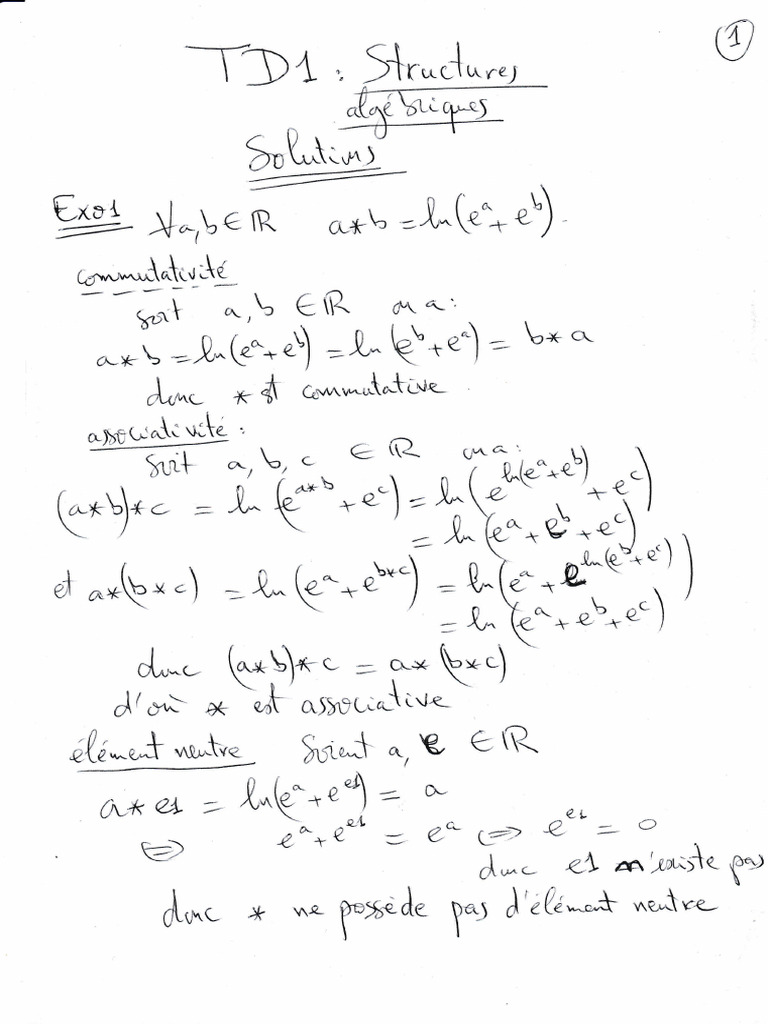 1
TD1 : Structures
algébriques
Solutions
Exo1 ∀a, b ∈ ℝ a * b = ln(e^a + e^b).
commutativité
soit a, b ∈ ℝ on a :
a * b = ln(e^a + e^b) = ln(e^b + e^a) = b * a
donc * est commutative
associativité :
soit a, b, c ∈ ℝ on a :
(a * b) * c = ln(e^{a*b} + e^c) = ln(e^{ln(e^a + e^b)} + e^c)
= ln(e^a + e^b + e^c)
et a * (b * c) = ln(e^a + e^{b*c}) = ln(e^a + e^{ln(e^b + e^c)})
= ln(e^a + e^b + e^c)
donc (a * b) * c = a * (b * c)
d'où * est associative
élément neutre Soient a, e ∈ ℝ
a * e1 = ln(e^a + e^{e1}) = a
⇔ e^a + e^{e1} = e^a ⇔ e^{e1} = 0
donc e1 n'existe pas
donc * ne possède pas d'élément neutre